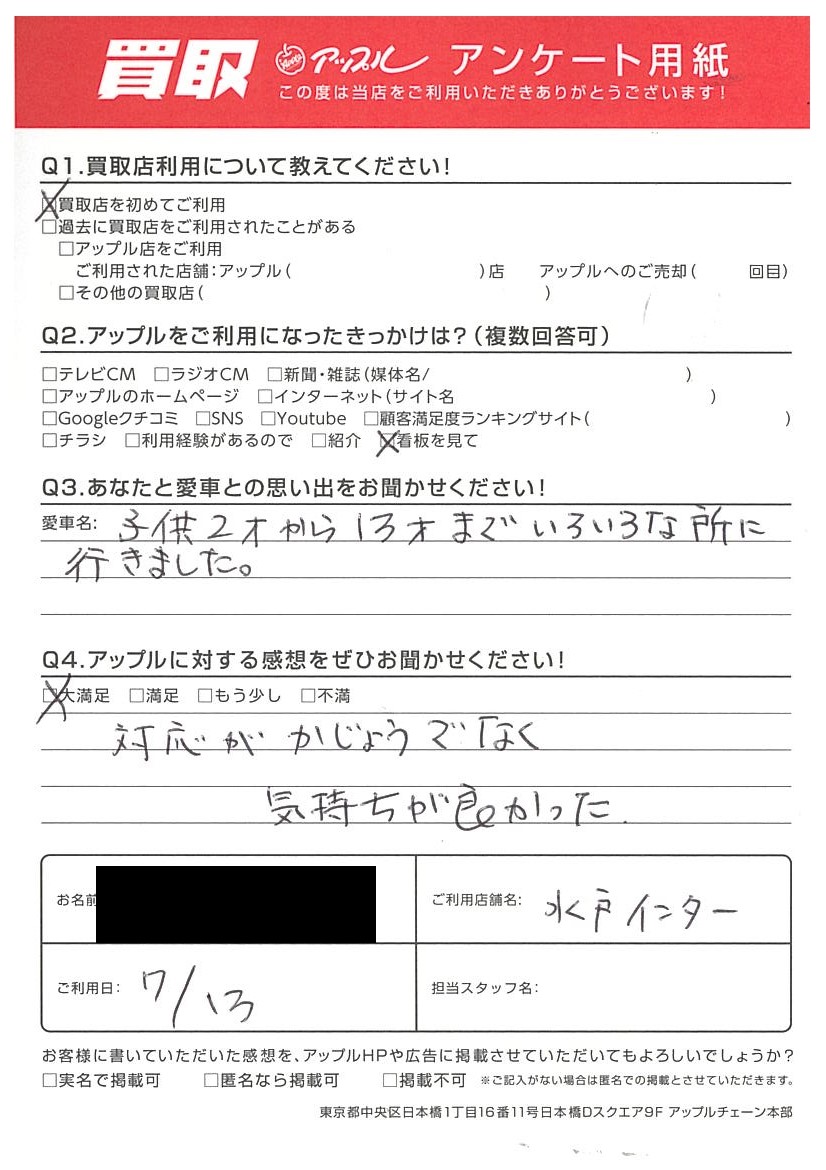 買取 アップル アンケート用紙
この度は当店をご利用いただきありがとうございます!
Q1.買取店利用について教えてください!
☒買取店を初めてご利用
□過去に買取店をご利用されたことがある
□アップル店をご利用
ご利用された店舗:アップル( )店 アップルへのご売却( 回目)
□その他の買取店( )
Q2.アップルをご利用になったきっかけは?(複数回答可)
□テレビCM □ラジオCM □新聞・雑誌(媒体名/ )
□アップルのホームページ □インターネット(サイト名 )
□Googleクチコミ □SNS □Youtube □顧客満足度ランキングサイト( )
□チラシ □利用経験があるので □紹介 ☒看板を見て
Q3.あなたと愛車との思い出をお聞かせください!
愛車名: 子供2才から13才までいろいろな所に
行きました。
Q4.アップルに対する感想をぜひお聞かせください!
☒大満足 □満足 □もう少し □不満
対応がかじょうでなく
気持ちが良かった.
お名前 ご利用店舗名: 水戸インター
ご利用日: 7/13 担当スタッフ名:
お客様に書いていただいた感想を、アップルHPや広告に掲載させていただいてもよろしいでしょうか?
□実名で掲載可 □匿名なら掲載可 □掲載不可 ※ご記入がない場合は匿名での掲載とさせていただきます。
東京都中央区日本橋1丁目16番11号日本橋Dスクエア9F アップルチェーン本部